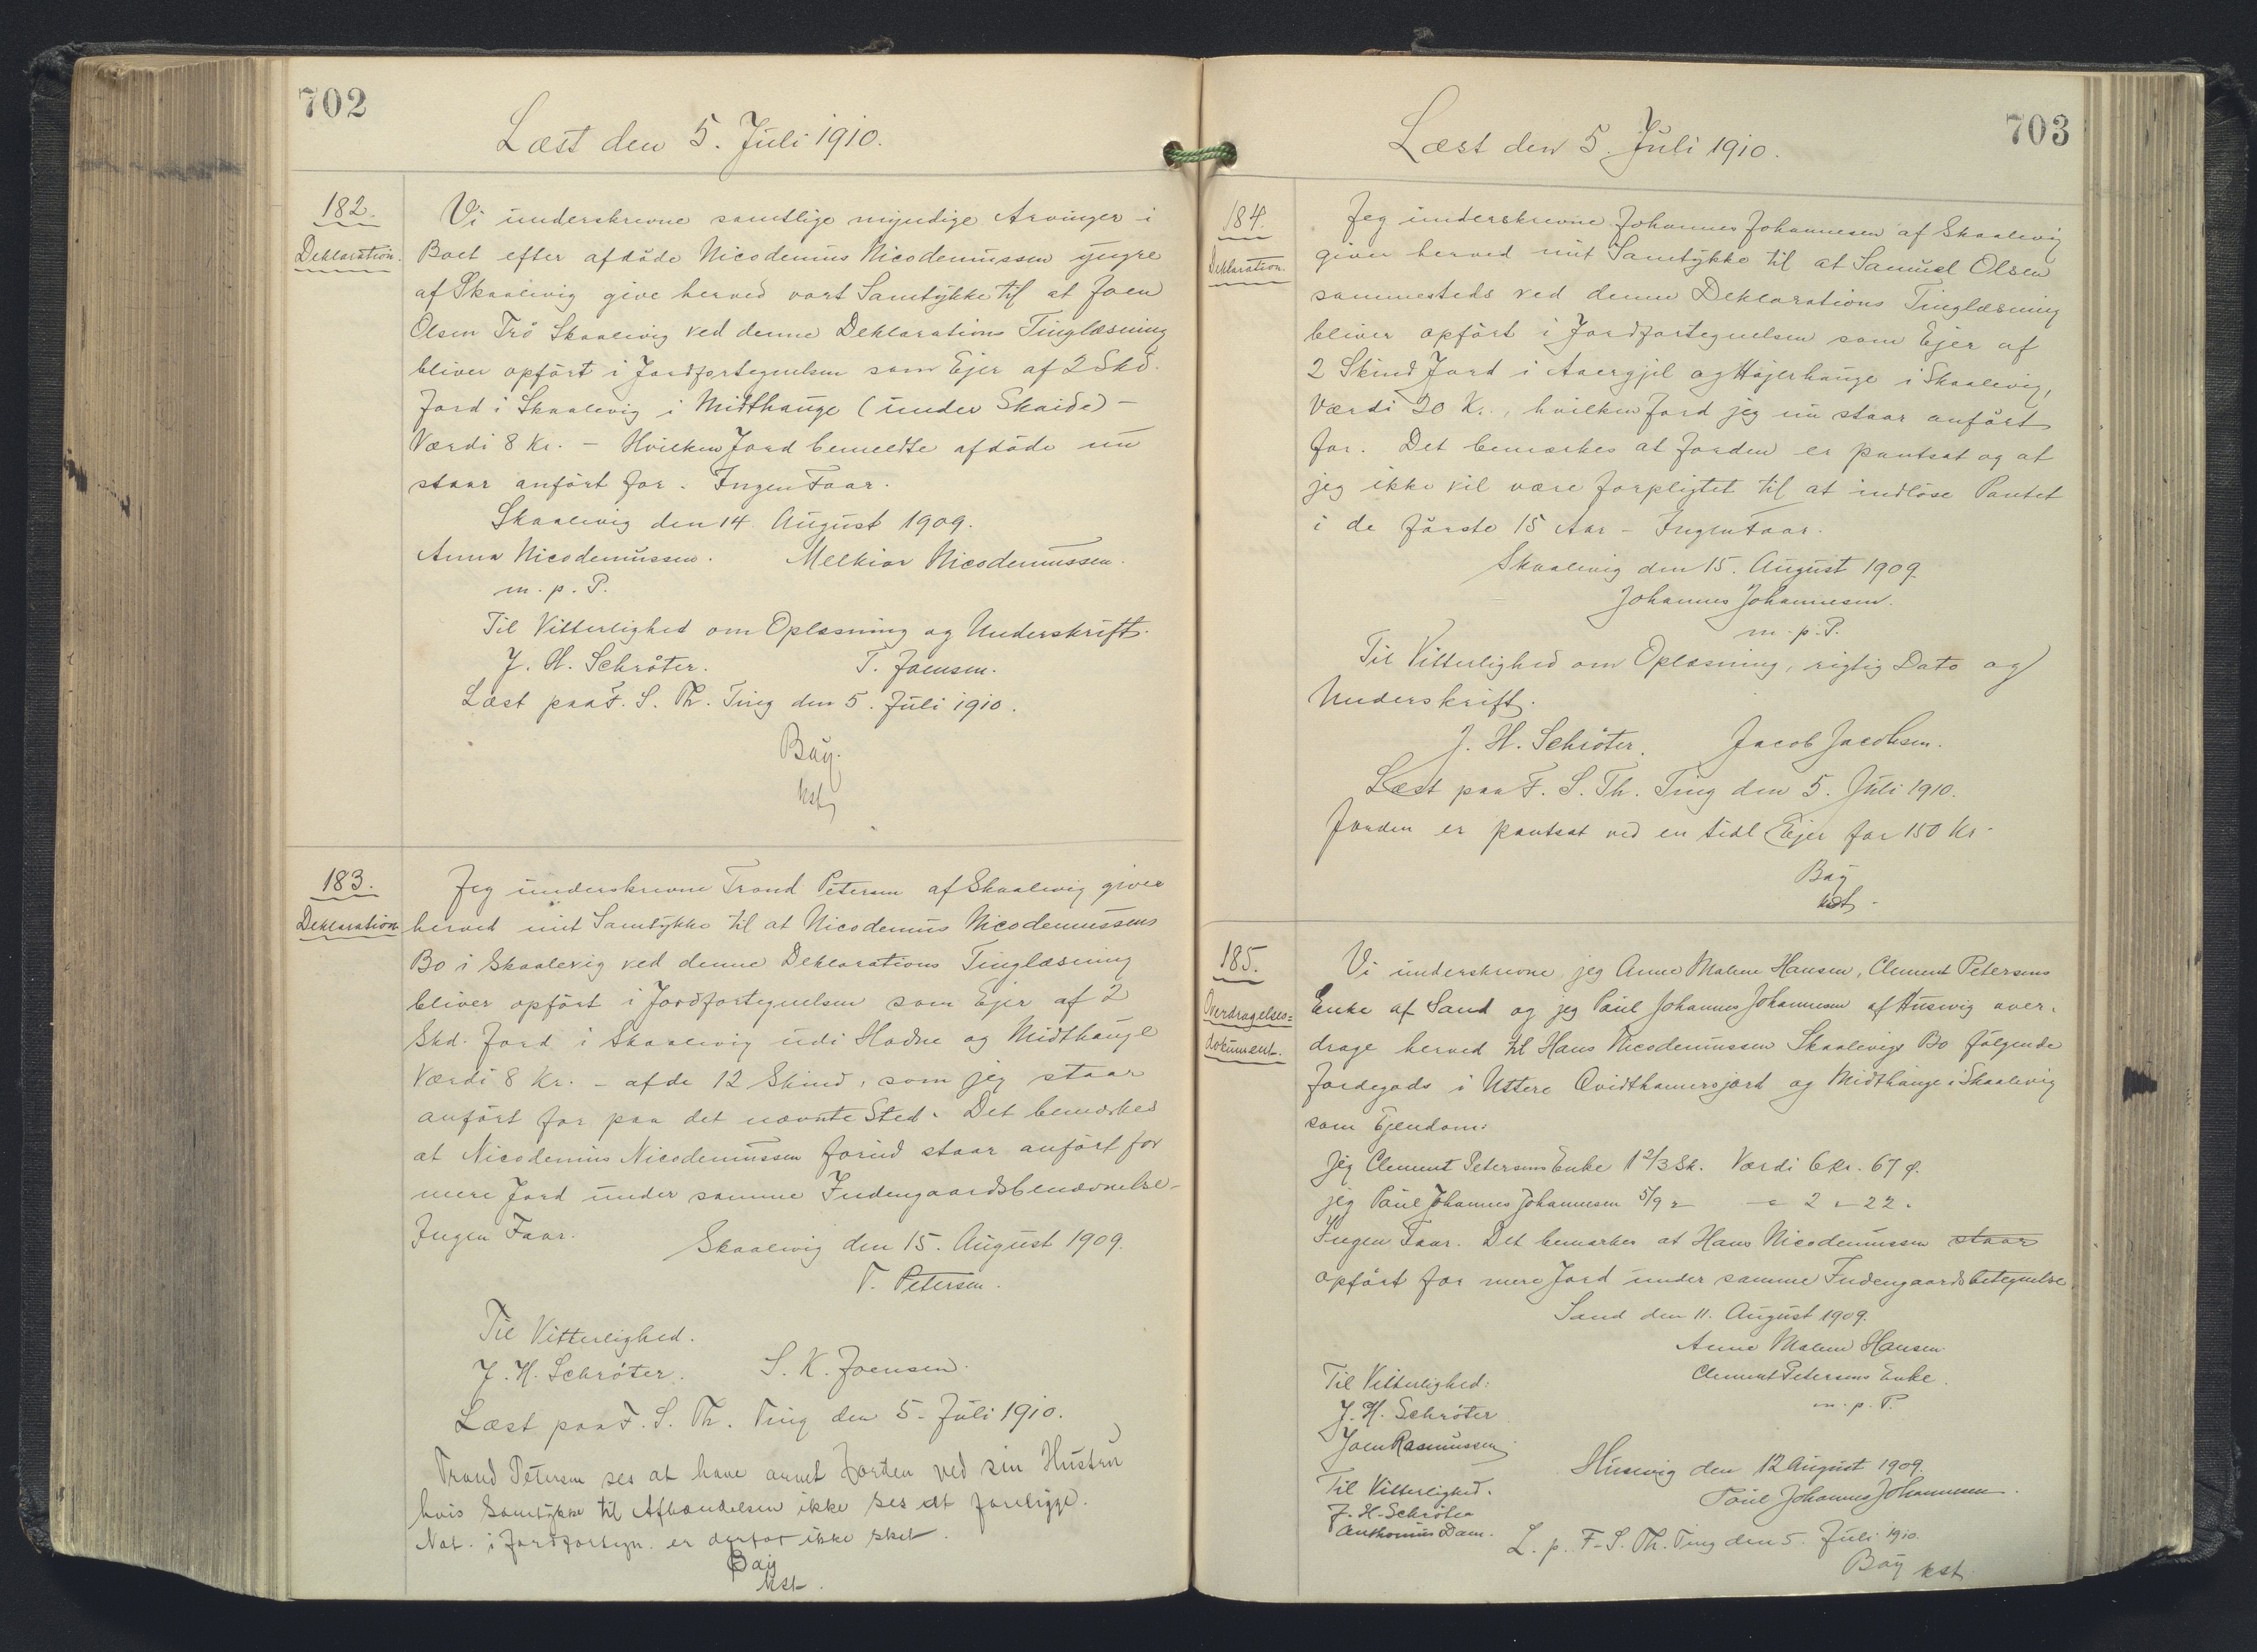 702
Læst den 5. Juli 1910.
182.
Deklaration.
Vi underskrevne samtlige myndige Arvinger i
Boet efter afdöde Nicodemus Nicodemussen yngre
af Skaalevig give herved vort Samtykke til at Joen
Olsen Trö Skaalevig ved denne Deklarations Tinglæsning
bliver opfört i Jordfortegnelsen som Ejer af 2 Skd.
Jord i Skaalevig i Midthauge (under Skaide) -
Værdi 8 Kr. - Hvilken Jord bemeldte afdöde nu
staar anfört for. Ingen Faar.
Skaalevig den 14. August 1909.
Anna Nicodemussen. Melkior Nicodemussen.
m. p. P.
Til Vitterlighed om Oplæsning og Underskrift.
J. H. Schröter. T. Joensen.
Læst paa F. S. Th. Ting den 5. Juli 1910.
Bay.
kst
183.
Deklaration
Jeg underskrevne Trond Petersen af Skaalevig giver
herved mit Samtykke til at Nicodemus Nicodemussens
Bo i Skaalevig ved denne Deklarations Tinglæsning
bliver opfört i Jordfortegnelsen som Ejer af 2
Skd. Jord i Skaalevig udi Hodne og Midthauge
Værdi 8 Kr. - af de 12 Skind, som jeg staar
anfört for paa det nævnte Sted. Det bemærkes
at Nicodemus Nicodemussen forud staar anfört for
mere Jord under samme Indengaardsbenævnelse -
Ingen Faar.
Skaalevig den 15. August 1909.
T. Petersen.
Til Vitterlighed.
J. H. Schröter. S. K. Joensen.
Læst paa F. S. Th. Ting den 5. Juli 1910.
Trond Petersen ses at have arvet Jorden ved sin Hustru
hvis Samtykke til Afhændelsen ikke ses at foreligge.
Not. i Jordfortegn. er derfor ikke sket.
Bay
kst.
703
Læst den 5. Juli 1910.
184.
Deklaration.
Jeg underskrevne Johannes Johannesen af Skaalevig
giver herved mit Samtykke til at Samuel Olsen
sammesteds ved denne Deklarations Tinglæsning
bliver opfört i Jordfortegnelsen som Ejer af
2 Skind Jord i Aaergjil og Höjerhauge i Skaalevig,
Værdi 20 Kr., hvilken Jord jeg nu staar anfört
for. Det bemærkes at Jorden er pantsat og at
jeg ikke vil være forpligtet til at indlöse Pantet
i de förste 15 Aar - Ingen Faar.
Skaalevig den 15. August 1909.
Johannes Johannesen.
m. p. P.
Til Vitterlighed om Oplæsning, rigtig Dato og
Underskrift.
J. H. Schröter. Jacob Jacobsen.
Læst paa F. S. Th. Ting den 5. Juli 1910.
Jorden er pantsat ved en tidl Ejer for 150 Kr.
Bay
kst.
185.
Overdragelses=
dokument.
Vi underskrevne, jeg Anne Malene Hansen, Clement Petersens
Enke af Sand og jeg Paul Johannes Johannesen af Husevig over-
drage herved til Hans Nicodemussen Skaalevigs Bo fölgende
Jordegods i Uttere Qvidthamersjord og Midthauge i Skaalevig
som Ejendom:
Jeg Clement Petersens Enke 1 2/3 Sk. Værdi 6 Kr. 67 ø.
jeg Paul Johannes Johannesen 5/9 " " 2 " 22 "
Ingen Faar. Det bemærkes at Hans Nicodemussen staar
opfört for mere Jord under samme Indengaardsbetegnelse.
Sand den 11. August 1909.
Anne Malene Hansen
Clement Petersens Enke.
m. p. P.
Til Vitterlighed:
J. H. Schröter
Joen Rasmussen
Husevig den 12 August 1909.
Paul Johannes Johannesen.
Til Vitterlighed.
J. H. Schröter
Anthonius Dam.
L. p. F. S. Th. Ting den 5. Juli 1910.
Bay kst